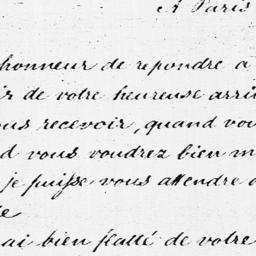 A Paris
honneur de repondre a
ir de votre heureuse arri
ous recevoir, quand vou
d vous voudrez bien m
je puisse vous attendre
ai bien flatté de votre